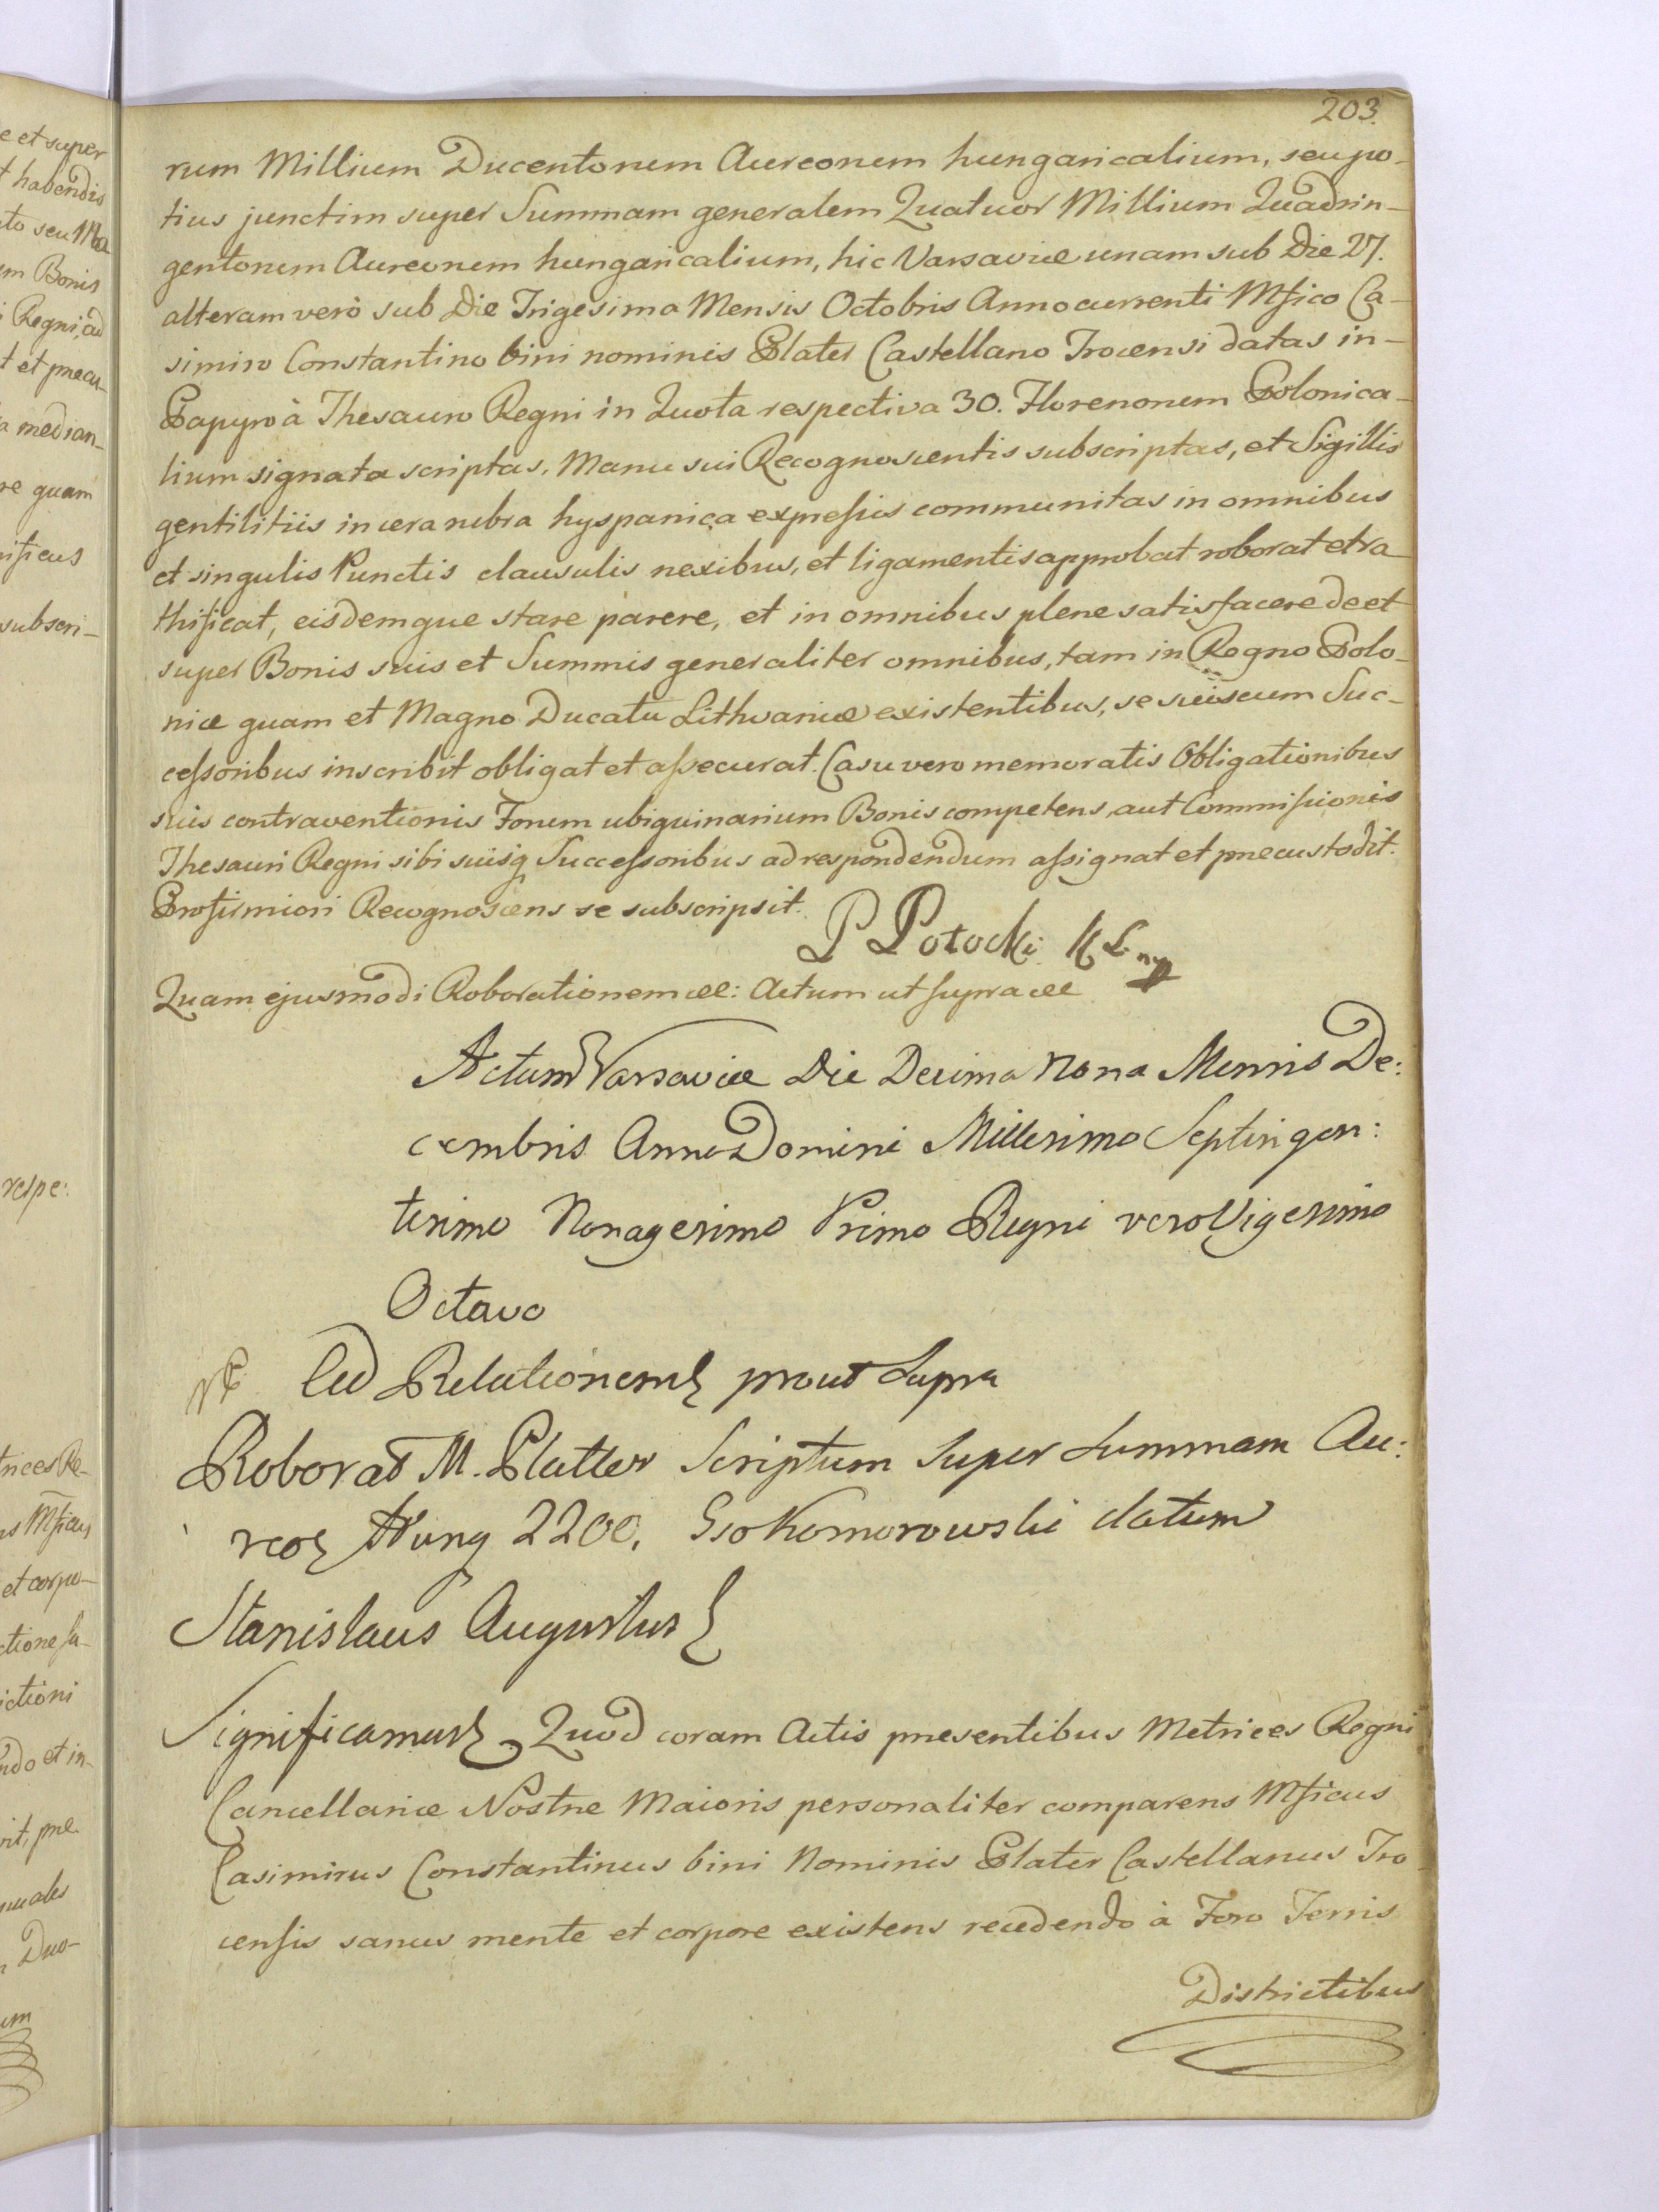 203.
rum Millium Ducentorum Aureorum hungaricalium, seu po-
tius junctim super Summam generalem Quatuor Millium Quadrin-
gentorum Aureorum hungaricalium, hic Varsaviæ unam sub Die 27.
alteram verò sub Die Trigesima Mensis Octobris Anno currenti Mfico Ca-
simiro Constantino bini nominis Plater Castellano Trocensi datas in-
Papyro à Thesauro Regni in Quota respectiva 30. Florenorum Polonica-
lium signata scriptas, Manu sui Recognoscentis subscriptas, et Sigillis
gentilitiis in cera rubra hyspanica expressis communitas in omnibus
et singulis Punctis clausulis nexibus, et ligamentis approbat roborat et ra
thificat, eisdemque stare parere, et in omnibus plene satisfacere de et
super Bonis suis et Summis generaliter omnibus, tam in Regno Polo-
niæ quam et Magno Ducatu Lithvaniæ existentibus, se suiscum Suc-
cessoribus inscribit obligat et assecurat. Casu vero memoratis Obligationibus
suis contraventionis Forum ubiquinarium Bonis competens, aut Commissionis
Thesauri Regni sibi suisq Successoribus ad respondendum assignat et præcustodit.
Profirmiori Recognoscens se subscripsit.
P Potocki K L mp
Quam ejusmodi Roborationem ee: Actum ut supra ee
Actum Varsaviæ Die Decima Nona Mensis De:
cembris Anno Domini Millesimo Septingen:
tesimo Nonagesimo Primo Regni vero Vigesimo
Octavo
Ad Relationem prout Supra
Roborat M. Platter Scriptum Super Summam Au:
reor Hung 2200, Gso Komorowski datum
Stanislaus Augustus
Significamus Quod coram Actis præsentibus Metrices Regni
Cancellariæ Nostræ Maioris personaliter comparens Mficus
Casimirus Constantinus bini Nominis Plater Castellanus Tro
censis sanus mente et corpore existens recedendo à Foro Terris
Districtibus